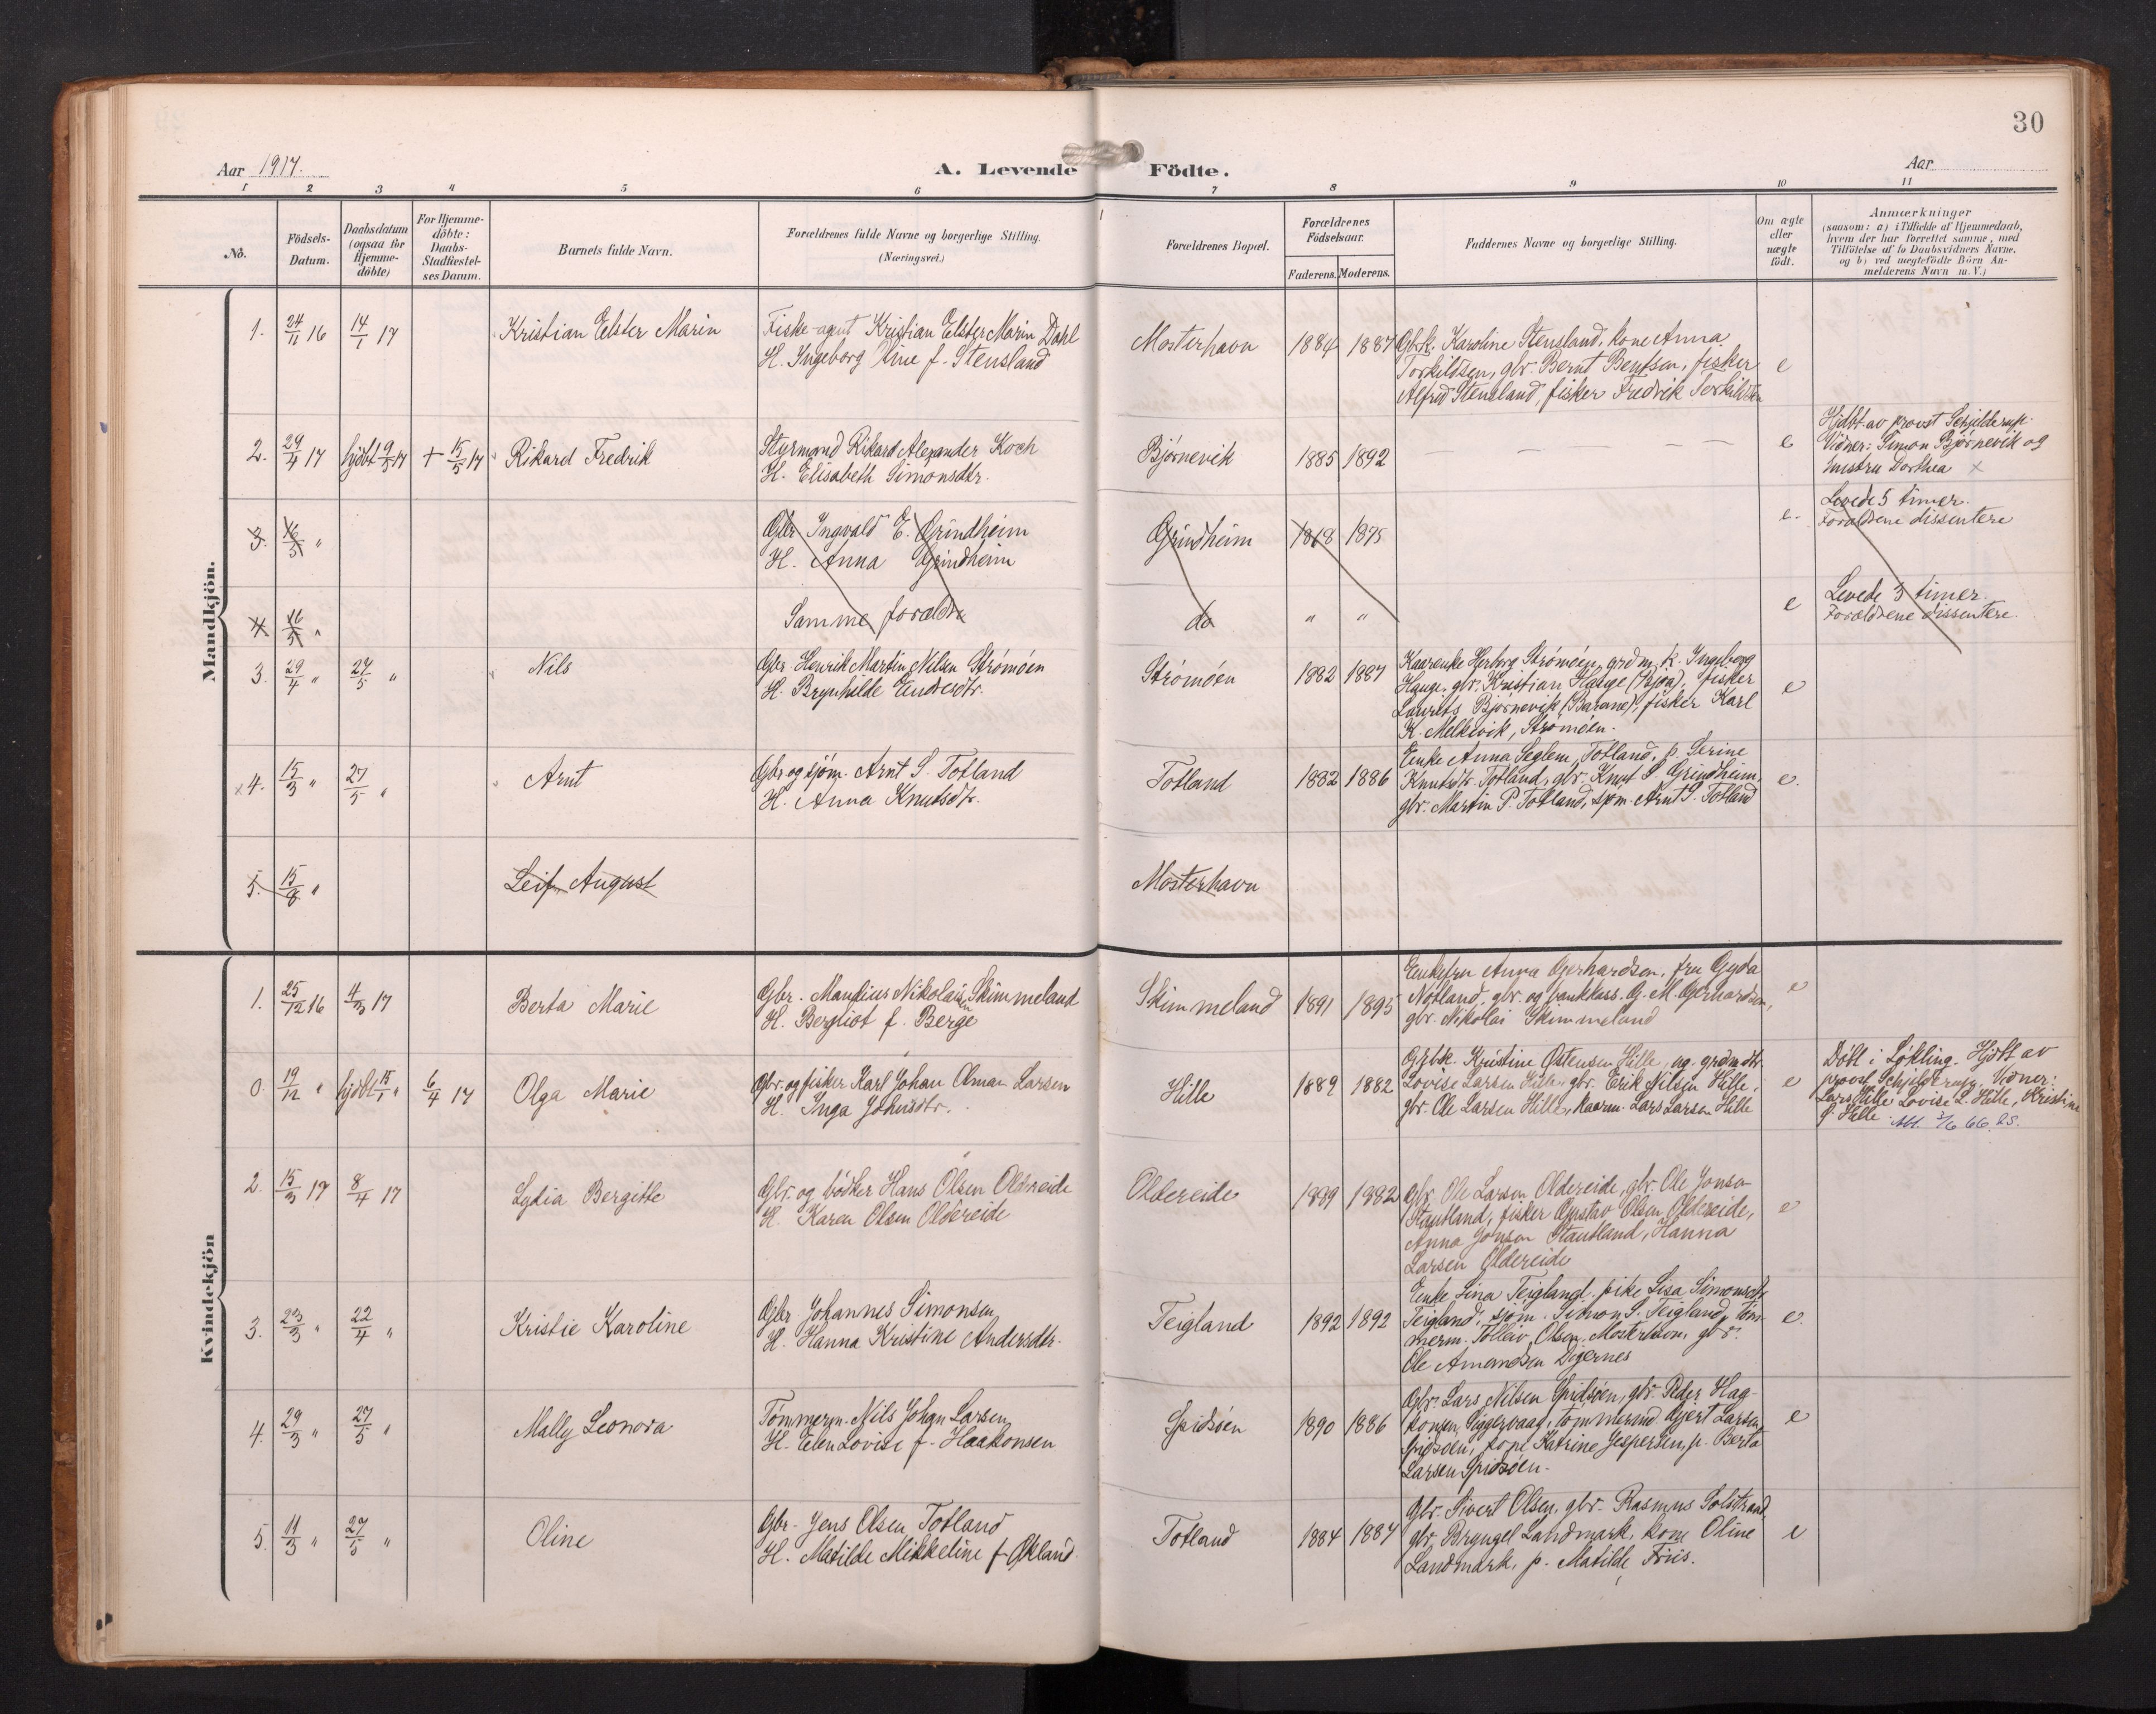 30
Aar 1917.
A. Levende Födte.
Aar
1 2 3 4 5 6 7 8 9 10 11
No.
Födsels-Datum.
Daabsdatum (ogsaa for Hjemme-döbte)
For Hjemme-döbte: Daabs-Stadfæstel-ses Datum.
Barnets fulde Navn.
Forældrenes fulde Navne og borgerlige Stilling.
(Næringsvei.)
Forældrenes Bopæl.
Forældrenes Födselsaar.
Faderens. Moderens.
Faddernes Navne og borgerlige Stilling.
Om ægte eller uægte födt.
Anmærkninger
(saasom: a) i Tilfælde af Hjemmedaab,
hvem der har forrettet samme, med
Tilföielse af to Daabsvidners Navne,
og b) ved uægtefödte Börn An-
melderens Navn m. V.)
Mandkjön.
1. 24/11 16 14/1 17 Kristian Elster Marin
Fiske-agent Kristian Elster Marin Dahl
H. Ingeborg Tine f. Stensland
Mosterhavn 1884 1887
Gbrk. Karoline Stensland, kone Anna
Torkildsen, gbr. Bernt Bentsen, fisker
Alfred Stensland, fisker Fredrik Torkildsen
e
2. 29/4 17 hjdbt 9/5 17 + 15/5 17 Rikard Fredrik
Styrmand Rikard Alexander Koch
H. Elisabeth Simonsdtr.
Bjørnevik 1885 1892
— — — —
e
Hjdbt. av provst Schjelderup.
Vidner: Simon Bjørnevik og
hustru Dorthea x
3. 16/5 "
Gbr Ingvald E. Grindheim
H. Anna Grindheim
Grindheim 1868 1875
e.
Levede 5 timer.
Forældrene dissentere
4 16/5 "
Samme forældre
do " "
e
Levede 3 timer.
Forældrene dissentere.
3. 29/4 " 27/5 " Nils
Gbr. Henrik Martin Nilsen Strömöen
H. Brynhilde Endresdtr.
Strömöen 1882 1887
Kaarenke Herborg Strömöen, grdm. k. Ingeborg
Hauge, gbr. Kristian Hauge, fisker
Laurits Bjørnevik, fisker Karl
K. Melkevik, Strömöen.
e
x4. 15/3 " 27/5 " Arnt
Gbr og sjøm. Arnt S. Totland
H. Anna Knutsdtr.
Totland 1882 1886
Enke Anna Seglem, Totland, p. Serine
Knutsdtr. Totland, gbr. Knut S. Grindheim,
gbr. Martin P. Totland, sjøm. Arnt S. Totland
e.
5. 15/8 " Leif August
Mosterhavn
Kvindekjön
1. 25/12 16 4/3 17 Berta Marie
Gbr. Mandius Nikolaisen Skimmeland
H. Bergliot f. Berge
Skimmeland 1891 1895
Enkefru Anna Gerhardsen, fru Gyda
Notland, gbr. og bankkass. G. M. Gerhardsen,
gbr. Nikolai Skimmeland
e
0. 19/12 " hjdbt 15/1 " 6/4 17 Olga Marie
Gbr. og fisker Karl Johan Olman Larsen
H. Inga Johnsdtr.
Hille 1889 1882
Gbrk. Kristine Østensen Hille, ug. grdm.dtr.
Lovise Larsen Hille, gbr. Erik Nilsen Hille,
gbr. Ole Larsen Hille, kaarm. Lars Larsen Hille
e
Döbt i Løkling. Hjdbt av
provst Schjelderup. Vidner:
Lars Hille Lovise L. Hille, Kristine
Ø. Hille. Att. 7/6 66. LS.
2. 15/3 17 8/4 17 Lydia Bergitte
Gbr. og bödker Hans Olsen Oldereide
H. Karen Olsen Oldereide
Oldereide 1889 1882
Gbr. Ole Larsen Oldereide, gbr. Ole Jonsen
Stautland, fisker Gustav Olsen Oldereide,
Anna Jonsen Stautland, Hanna
Larsen Oldereide
e
3. 23/3 " 22/4 " Kristie Karoline
Gbr Johannes Simonsen
H. Hanna Kristine Andersdtr.
Teigland 1892 1892
Enke Sina Teigland, pike Lisa Simonsdtr.
Teigland, sjøm. Simon S. Teigland, tøm-
merm. Tolleiv Olsen, Mosterhavn, gbr.
Ole Amundsen Digernes
e.
4. 29/3 " 27/5 " Mally Leonora
Tømmerm. Nils Johan Larsen
H. Elen Lovise f. Haakonsen
Spidsöen 1890 1886
Gbr. Lars Nilsen Spidsöen, gbr. Peder Haa-
konsen, Siggervaag, tømmermd. Gjert Larsen
Spidsöen, kone Katrine Jespersen, p. Berta
Larsen Spidsöen.
e
5. 11/3 " 27/5 " Oline
Gbr. Jens Olsen Totland
H. Matilde Mikkeline f. Økland
Totland 1884 1884
Gbr. Sivert Olsen, gbr. Rasmus Solstrand,
gbr. Bryngel Landmark, kone Oline
Landmark, p. Matilde Friis.
e